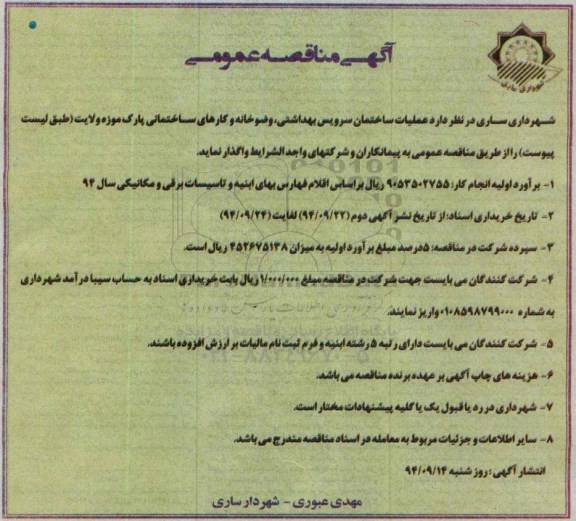 آگهی مناقصه عمومی
شهرداری ساری
شهرداری ساری در نظر دارد عملیات ساختمان سرویس بهداشتی، وضوخانه و کارهای ساختمانی پارک موزه ولایت (طبق لیست
پیوست) را از طریق مناقصه عمومی به پیمانکاران و شرکتهای واجد الشرایط واگذار نماید.
۱- برآورد اولیه انجام کار: ۹۰۵۳۵۰۲۷۵۵ ریال براساس اقلام فهارس بهای ابنیه و تاسیسات برقی و مکانیکی سال ۹۴
۲- تاریخ خریداری اسناد: از تاریخ نشر آگهی دوم (۹۴/۰۹/۲۲) لغایت (۹۴/۰۹/۲۴)
۳- سپرده شرکت در مناقصه: ۵درصد مبلغ برآورد اولیه به میزان ۴۵۲۶۷۵۱۳۸ ریال است.
۴- شرکت کنندگان می بایست جهت شرکت در مناقصه مبلغ ۱/۰۰۰/۰۰۰ ریال بابت خریداری اسناد به حساب سیبا درآمد شهرداری
به شماره ۰۱۰۸۵۹۸۷۹۹۰۰۰ واریز نمایند.
۵- شرکت کنندگان می بایست دارای رتبه ۵ رشته ابنیه و فرم ثبت نام مالیات بر ارزش افزوده باشند.
۶- هزینه های چاپ آگهی بر عهده برنده مناقصه می باشد.
۷- شهرداری در رد یا قبول یک یا کلیه پیشنهادات مختار است.
۸- سایر اطلاعات و جزئیات مربوط به معامله در اسناد مناقصه مندرج می باشد.
انتشار آگهی: روز شنبه ۹۴/۰۹/۱۴
مهدی عبوری - شهردار ساری